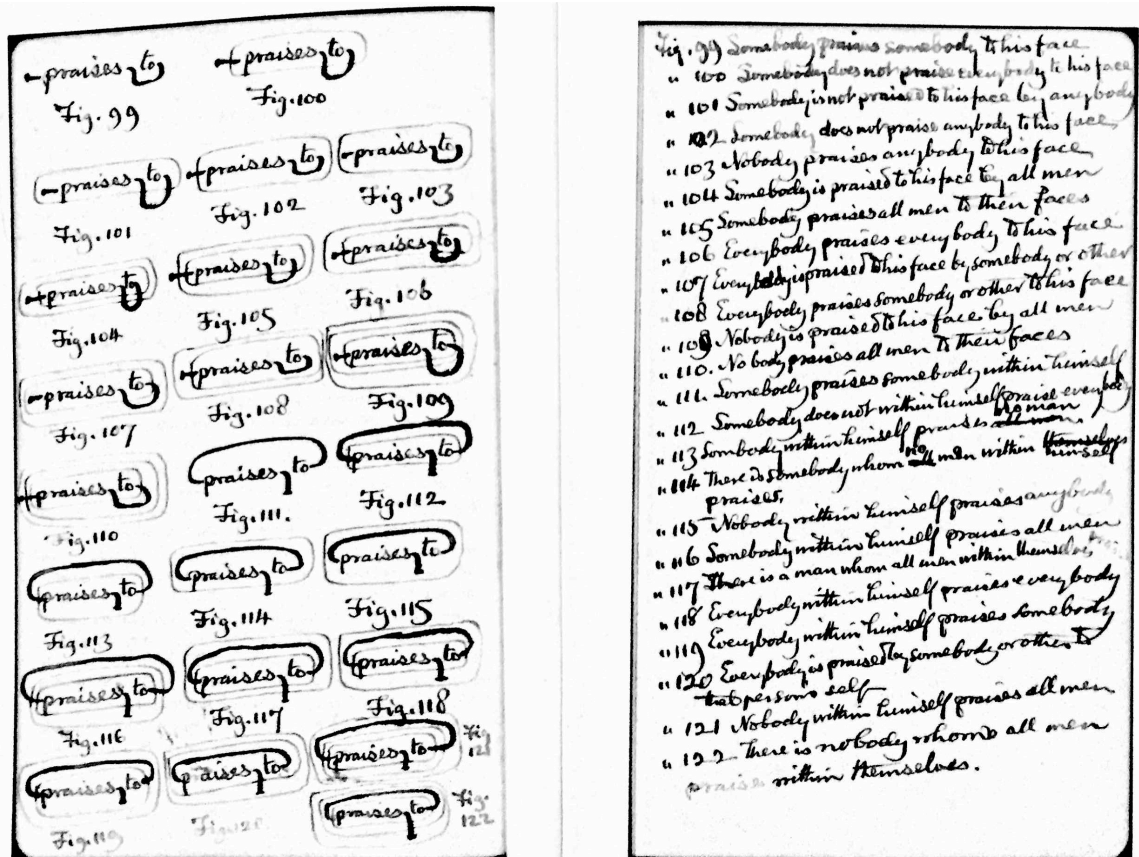 praises to praises to
Fig. 99 Fig. 100
praises to praises to praises to
Fig. 101 Fig. 102 Fig. 103
praises to praises to praises to
Fig. 104 Fig. 105 Fig. 106
praises to praises to praises to
Fig. 107 Fig. 108 Fig. 109
praises to praises to praises to
Fig. 110 Fig. 111. Fig. 112
praises to praises to praises to
Fig. 113 Fig. 114 Fig. 115
praises to praises to praises to
Fig. 116 Fig. 117 Fig. 118
praises to praises to praises to Fig. 121
Fig. 119 Fig. 120 praises to Fig. 122
Fig. 99 Somebody praises somebody to his face
" 100 Somebody does not praise everybody to his face
" 101 Somebody is not praised to his face by anybody
" 102 Somebody does not praise anybody to his face
" 103 Nobody praises anybody to his face
" 104 Somebody is praised to his face by all men
" 105 Somebody praises all men to their faces
" 106 Everybody praises everybody to his face
" 107 Everybody is praised to his face by somebody or other
" 108 Everybody praises somebody or other to his face
" 109 Nobody is praised to his face by all men
" 110. Nobody praises all men to their faces
" 111. Somebody praises somebody within himself
" 112 Somebody does not within himself praise everybody
" 113 Somebody within himself praises all men no man
" 114 There is somebody whom all no men within themselves himself
praises.
" 115 Nobody within himself praises anybody
" 116 Somebody within himself praises all men
" 117 There is a man whom all men within themselves
" 118 Everybody within himself praises everybody
" 119 Everybody within himself praises somebody
" 120 Everybody is praised by somebody or other to
that person's self
" 121 Nobody within himself praises all men
" 122 There is nobody whom all men
praise within themselves.